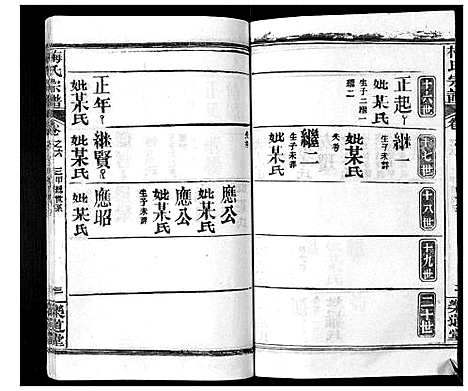 十六世
十七世
十八世
十九世
二十世
正起
妣某氏
生子二繼一
繼二
繼一
生子未詳
妣某氏
失考
繼二
失考
應公
妣某氏
應公
妣某氏
生子未詳
正年
妣某氏
繼賢
妣某氏
應昭
妣某氏
梅氏宗譜
卷之六
樂道堂